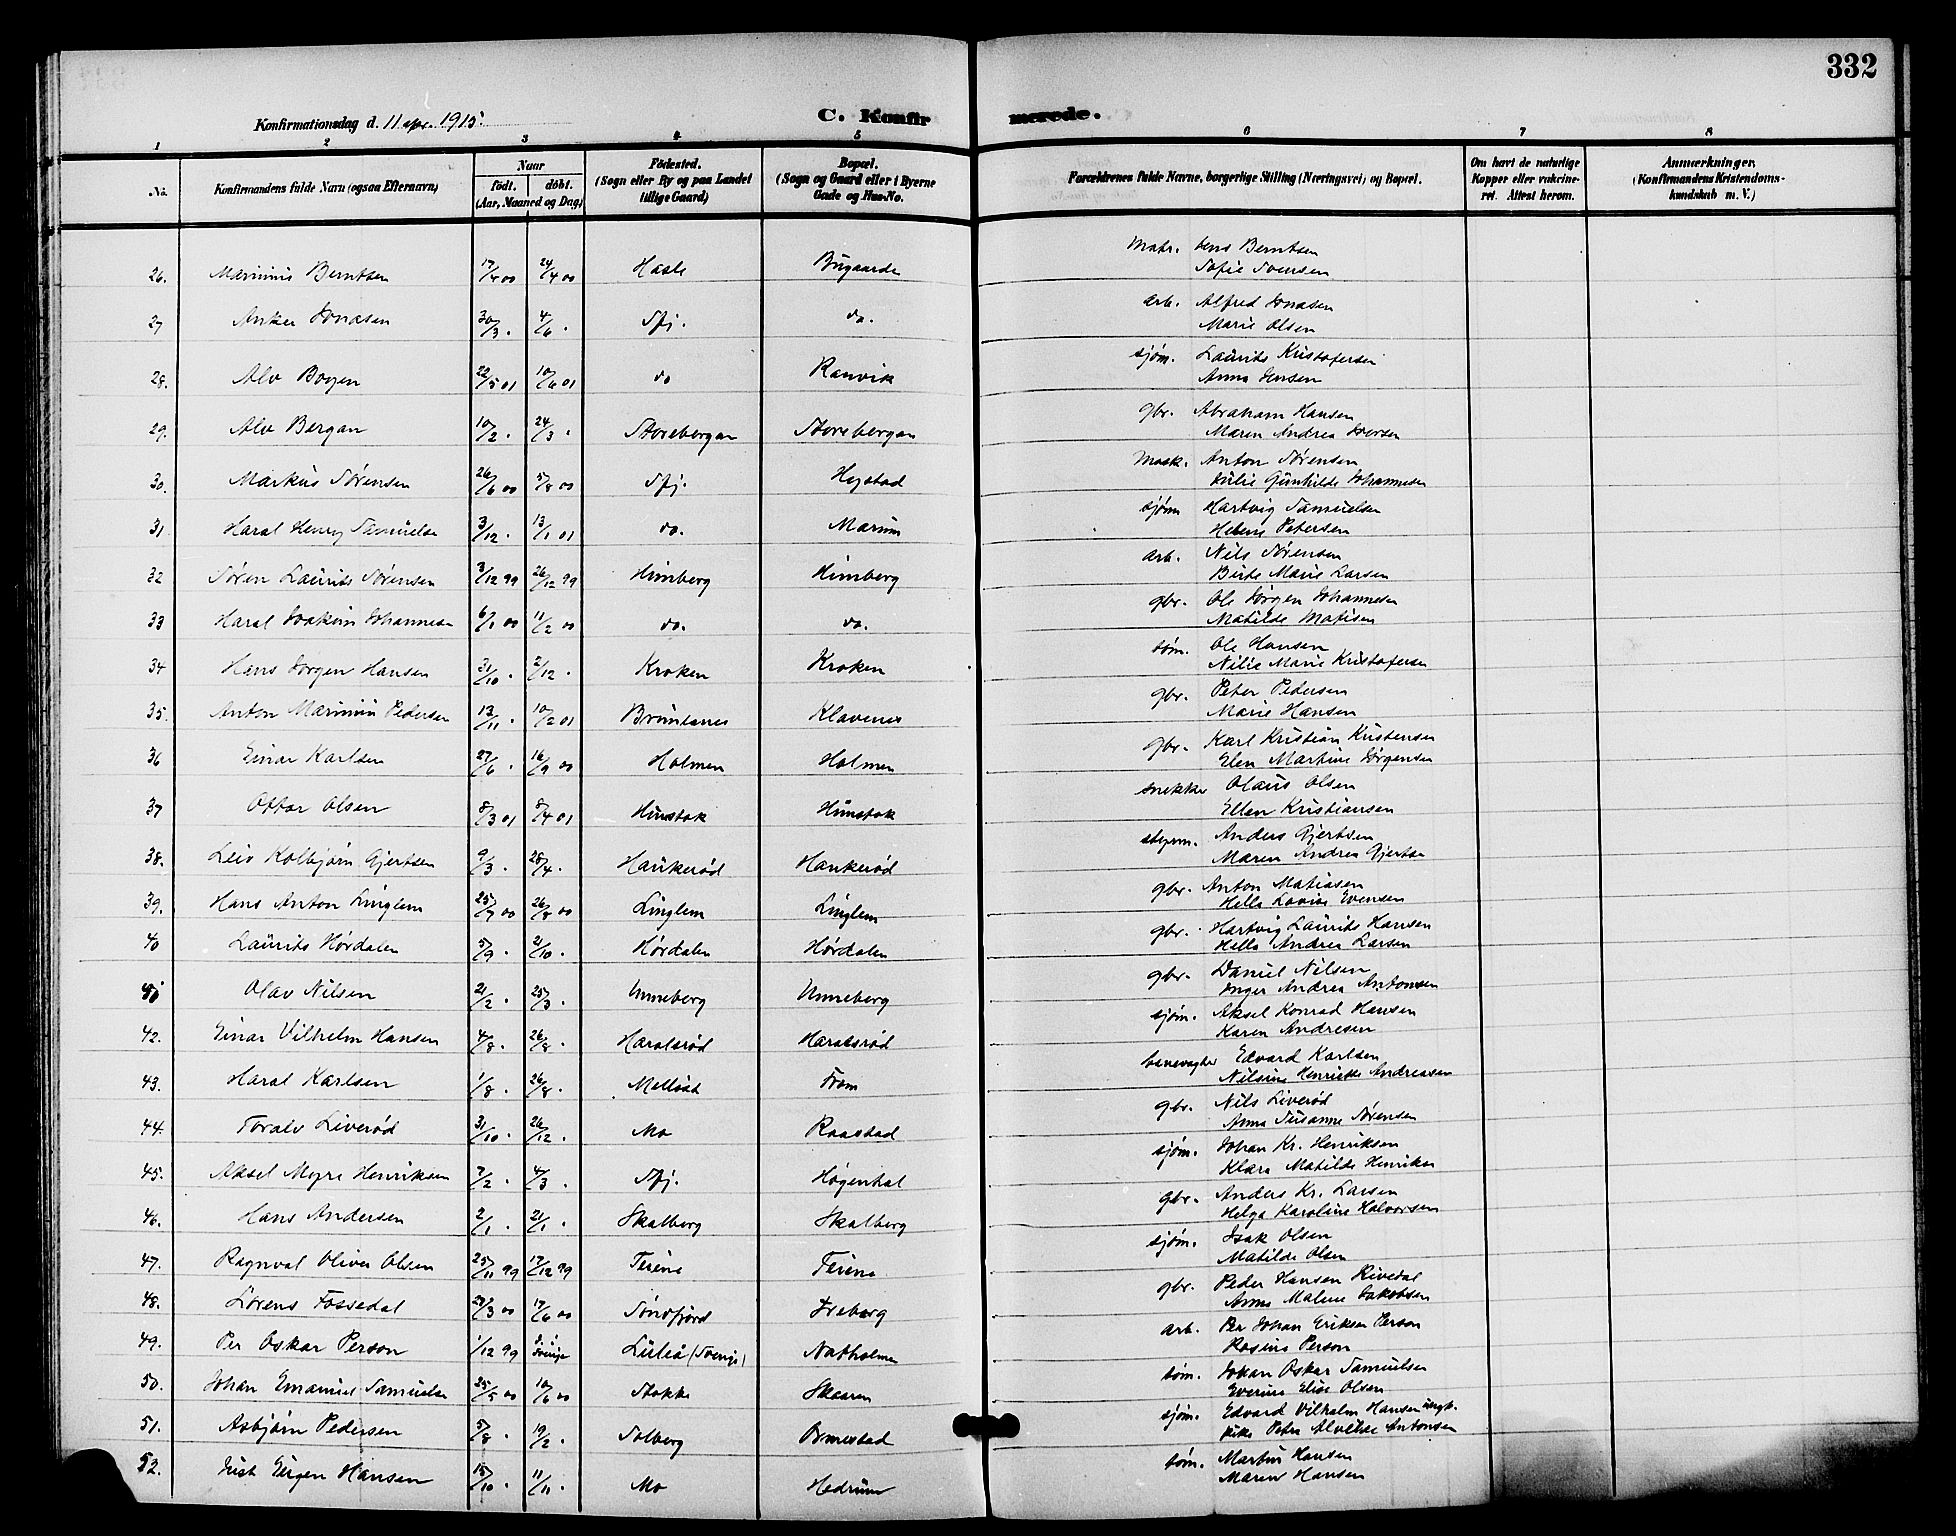 332
Konfirmationsdag d. 11 apr. 1915.
C. Konfirmerede.
1 2 3 4 5 6 7 8
No.
Konfirmandens fulde Navn (ogsaa Efternavn)
Naar
födt. döbt.
(Aar, Maaned og Dag)
Födested.
(Sogn eller By og paa Landet
tillige Gaard)
Bopæl.
(Sogn og Gaard eller i Byerne
Gade og Hus-No.
Forældrenes fulde Navne, borgerlige Stilling (Næringsvei) og Bopæl.
Om havt de naturlige
Kopper eller vakcine-
ret. Attest herom.
Anmærkninger,
(Konfirmandens Kristendoms-
kundskab m. V.)
26. Marinius Berntsen 17/4 00 24/4 00 Hasle Bugaarde Matr. Jens Berntsen
Sofie Svensen
27 Anker Jonasen 30/3 . 4/6 . Sfj. do. arb. Alfred Jonasen
Marie Olsen
28. Alv Bogen 22/5 01 10/6 01 do Ranvik sjøm. Laurits Kristofersen
Anna Jensen
29. Alv Bergan 10/2 . 24/3 . Storebergan Storebergan gbr. Abraham Hansen
Maren Andrea Iversen
30. Markus Sørensen 26/6 00 5/8 00 Sfj. Hystad Mask. Anton Sørensen
Julie Gunhilde Johannesen
31. Haral Henry Samuelse 3/12 . 13/1 01 do. Marum sjøm Hartvig Samuelsen
Helene Petersen
32 Søren Laurits Sørensen 3/12 99 26/12 99 Himberg Himberg arb. Nils Sørensen
Birte Marie Larsen
33 Haral Joakim Johannesse 6/1 00 11/2 00 do. do. gbr. Ole Jørgen Johannesen
Matilde Matisen
34 Hans Jørgen Hansen 31/10 . 2/12 . Kroken Kroken tøm. Ole Hansen
Nilie Marie Kristofersen
35. Anton Marinius Pedersen 13/11 . 10/2 01 Bruntanes Klavenes gbr. Peter Pedersen
Marie Hansen
36 Einar Karlsen 27/6 . 16/9 00 Holmen Holmen gbr. Karl Kristian Kristensen
Elen Martine Jørgensen
37 Ottar Olsen 8/3 01 8/4 01 Hunstok Hunstok snekker Olaus Olsen
Ellen Kristiansen
38. Leiv Kolbjørn Gjertsen 9/3 . 28/4 . Haukerød Haukerød styrm. Anders Gjertsen
Maren Andrea Gjertse
39. Hans Anton Linglem 25/7 00 26/8 00 Linglem Linglem gbr. Anton Matiasen
Hella Lovise Evensen
40 Laurits Hørdalen 5/9 . 21/10 . Hørdalen Hørdalen gbr. Hartvig Laurits Hansen
Hella Andrea Larsen
41 Olav Nilsen 21/2 . 25/3 . Unneberg Unneberg gbr. Daniel Nilsen
Inger Andrea Antonsen
42. Einar Vilhelm Hansen 4/8 . 26/8 . Haralsrød Haralsrød sjøm. Aksel Konrad Hansen
Karen Andresen
43. Haral Karlsen 1/8 . 26/8 . Melløst Fram banevagter Edvard Karlsen
Nilsine Henriette Andreasen
44. Toralv Liverød 31/10 . 26/12 . Mo Raastad gbr. Nils Liverød
Anna Susanne Sørensen
45. Aksel Myre Henriksen 7/2 . 4/3 . Sfj. Høgenhal sjøm. Johan Kr. Henriksen
Klara Matilde Henrikse
46. Hans Andersen 2/1 . 21/1 . Skalberg Skalberg gbr. Anders Kr. Larsen
Helga Karoline Halvorsen
47. Ragnval Oliver Olsen 25/11 99 17/12 99 Terene Terene sjøm. Isak Olsen
Matilde Olsen
48. Lorens Fossedal 29/3 00 17/6 00 Søndfjord Freberg gbr. Peder Hansen Rivedal
Anna Malene Jakobsen
49. Per Oskar Person 1/12 99 i Sverige Luleå (Sverige) Natholmen arb. Per Johan Eriksen Person
Rosine Person
50. Johan Emanuel Samuelse 25/5 00 10/6 00 Stokke Skaaren tøm. Johan Oskar Samuelsen
Everine Elise Olsen
51. Asbjørn Pedersen 5/8 . 19/2 . Solberg Ormestad sjøm. Edvard Vilhelm Hansen ungk.
pike Petra Alvilde Antonsen
52. Just Jørgen Hansen 15/10 . 11/11 . Mo Hedrum tøm. Martin Hansen
Maren Hansen